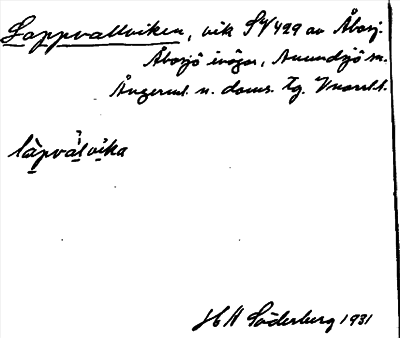 Lappvallviken, vik SV 429 av Åbosj.
Åbosjö ivägar, Anundsjö sn.
Ångerml. n. doms. tg. Vnorrl. l.
làpválvika
H H Söderberg 1931